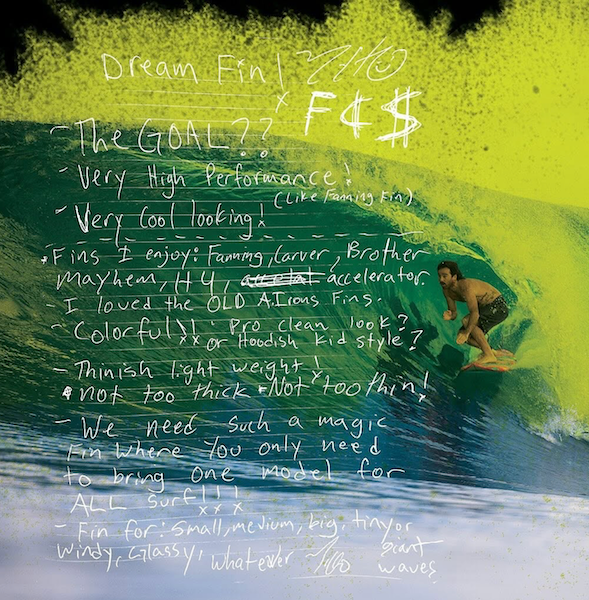 Dream Fin!
FC$
- The GOAL??
- Very High Performance!
(Like Fanning Fin)
- Very Cool looking!
• Fins I enjoy: Fanning, Carver, Brother
Mayhem, H4, accelerator.
- I loved the OLD A.Irons Fins.
- Colorful!! • Pro clean look?
or Hoodish Kid style?
- Thinish light weight!
• not too thick - Not too thin!
- We need such a magic
Fin Where You only need
to bring one model for
ALL Surf!!!
- Fin for: Small, medium, big, tiny or
Windy, Glassy, whatever giant
waves